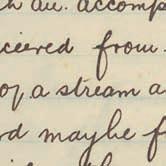 an. accomp
ciered from.
of a stream a
rd maybe f